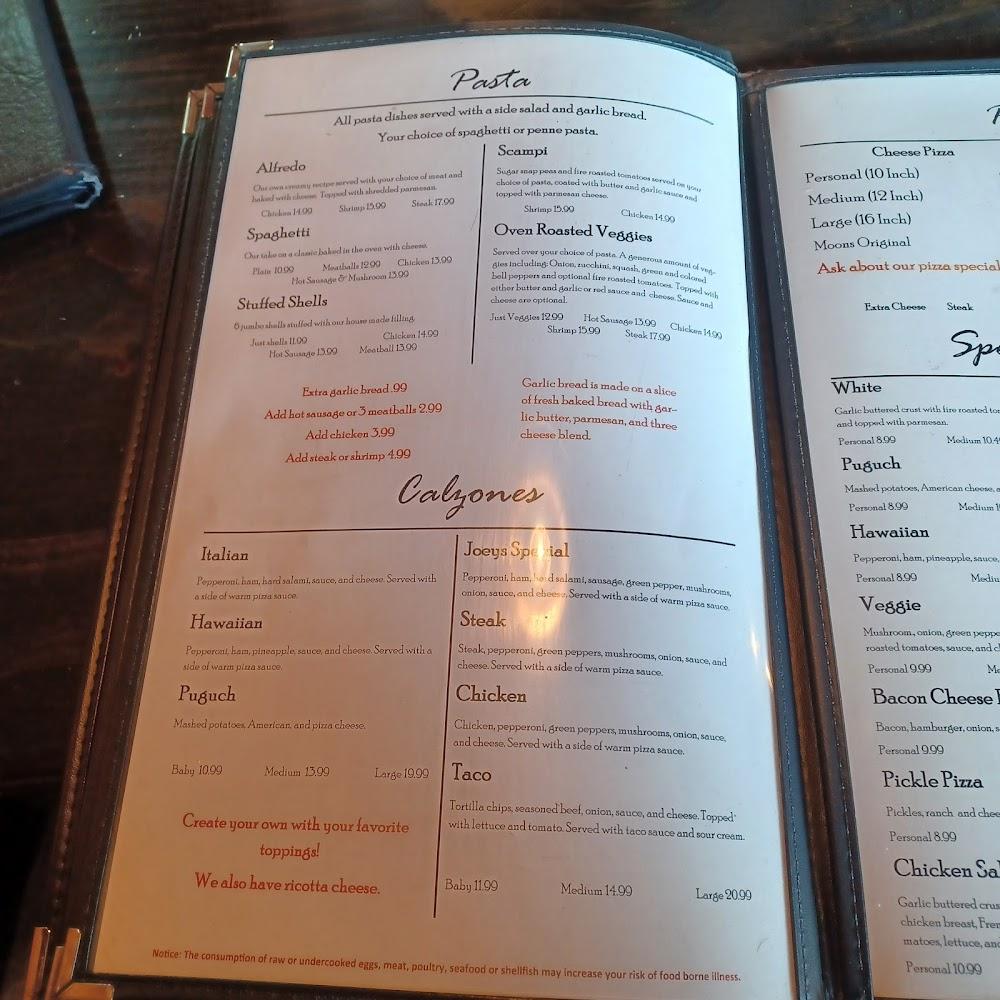 Pasta
All pasta dishes served with a side salad and garlic bread.
Your choice of spaghetti or penne pasta.
Alfredo
Our own creamy recipe served with your choice of meat and
baked with cheese. Topped with shredded parmesan.
Chicken 14.99 Shrimp 15.99 Steak 17.99
Spaghetti
Our take on a classic baked in the oven with cheese.
Plain 10.99 Meatballs 12.99 Chicken 13.99
Hot Sausage & Mushroom 13.99
Stuffed Shells
6 jumbo shells stuffed with our house made filling.
Just shells 11.99 Chicken 14.99
Hot Sausage 13.99 Meatball 13.99
Scampi
Sugar snap peas and fire roasted tomatoes served on your
choice of pasta, coated with butter and garlic sauce and
topped with parmesan cheese.
Shrimp 15.99 Chicken 14.99
Oven Roasted Veggies
Served over your choice of pasta. A generous amount of veg-
gies including: Onion, zucchini, squash, green and colored
bell peppers and optional fire roasted tomatoes. Topped with
either butter and garlic or red sauce and cheese. Sauce and
cheese are optional.
Just Veggies 12.99 Hot Sausage 13.99 Chicken 14.99
Shrimp 15.99 Steak 17.99
Extra garlic bread .99
Add hot sausage or 3 meatballs 2.99
Add chicken 3.99
Add steak or shrimp 4.99
Garlic bread is made on a slice
of fresh baked bread with gar-
lic butter, parmesan, and three
cheese blend.
Calzones
Italian
Pepperoni, ham, hard salami, sauce, and cheese. Served with
a side of warm pizza sauce.
Hawaiian
Pepperoni, ham, pineapple, sauce, and cheese. Served with a
side of warm pizza sauce.
Puguch
Mashed potatoes, American, and pizza cheese.
Baby 10.99 Medium 13.99 Large 19.99
Create your own with your favorite
toppings!
We also have ricotta cheese.
Joeys Special
Pepperoni, ham, hard salami, sausage, green pepper, mushrooms,
onion, sauce, and cheese. Served with a side of warm pizza sauce.
Steak
Steak, pepperoni, green peppers, mushrooms, onion, sauce, and
cheese. Served with a side of warm pizza sauce.
Chicken
Chicken, pepperoni, green peppers, mushrooms, onion, sauce,
and cheese. Served with a side of warm pizza sauce.
Taco
Tortilla chips, seasoned beef, onion, sauce, and cheese. Topped
with lettuce and tomato. Served with taco sauce and sour cream.
Baby 11.99 Medium 14.99 Large 20.99
Notice: The consumption of raw or undercooked eggs, meat, poultry, seafood or shellfish may increase your risk of food borne illness.
Cheese Pizza
Personal (10 Inch)
Medium (12 Inch)
Large (16 Inch)
Moons Original
Ask about our pizza special
Extra Cheese Steak
White
Garlic buttered crust with fire roasted
and topped with parmesan.
Personal 8.99 Medium 10.4
Puguch
Mashed potatoes, American cheese,
Personal 8.99 Medium
Hawaiian
Pepperoni, ham, pineapple, sauce,
Personal 8.99
Veggie
Mushroom, onion, green
roasted tomatoes, sauce, and
Personal 9.99
Bacon Cheese
Bacon, hamburger, onion,
Personal 9.99
Pickle Pizza
Pickles, ranch and
Personal 8.99
Chicken
Garlic buttered
chicken breast,
lettuce,
Personal 10.99